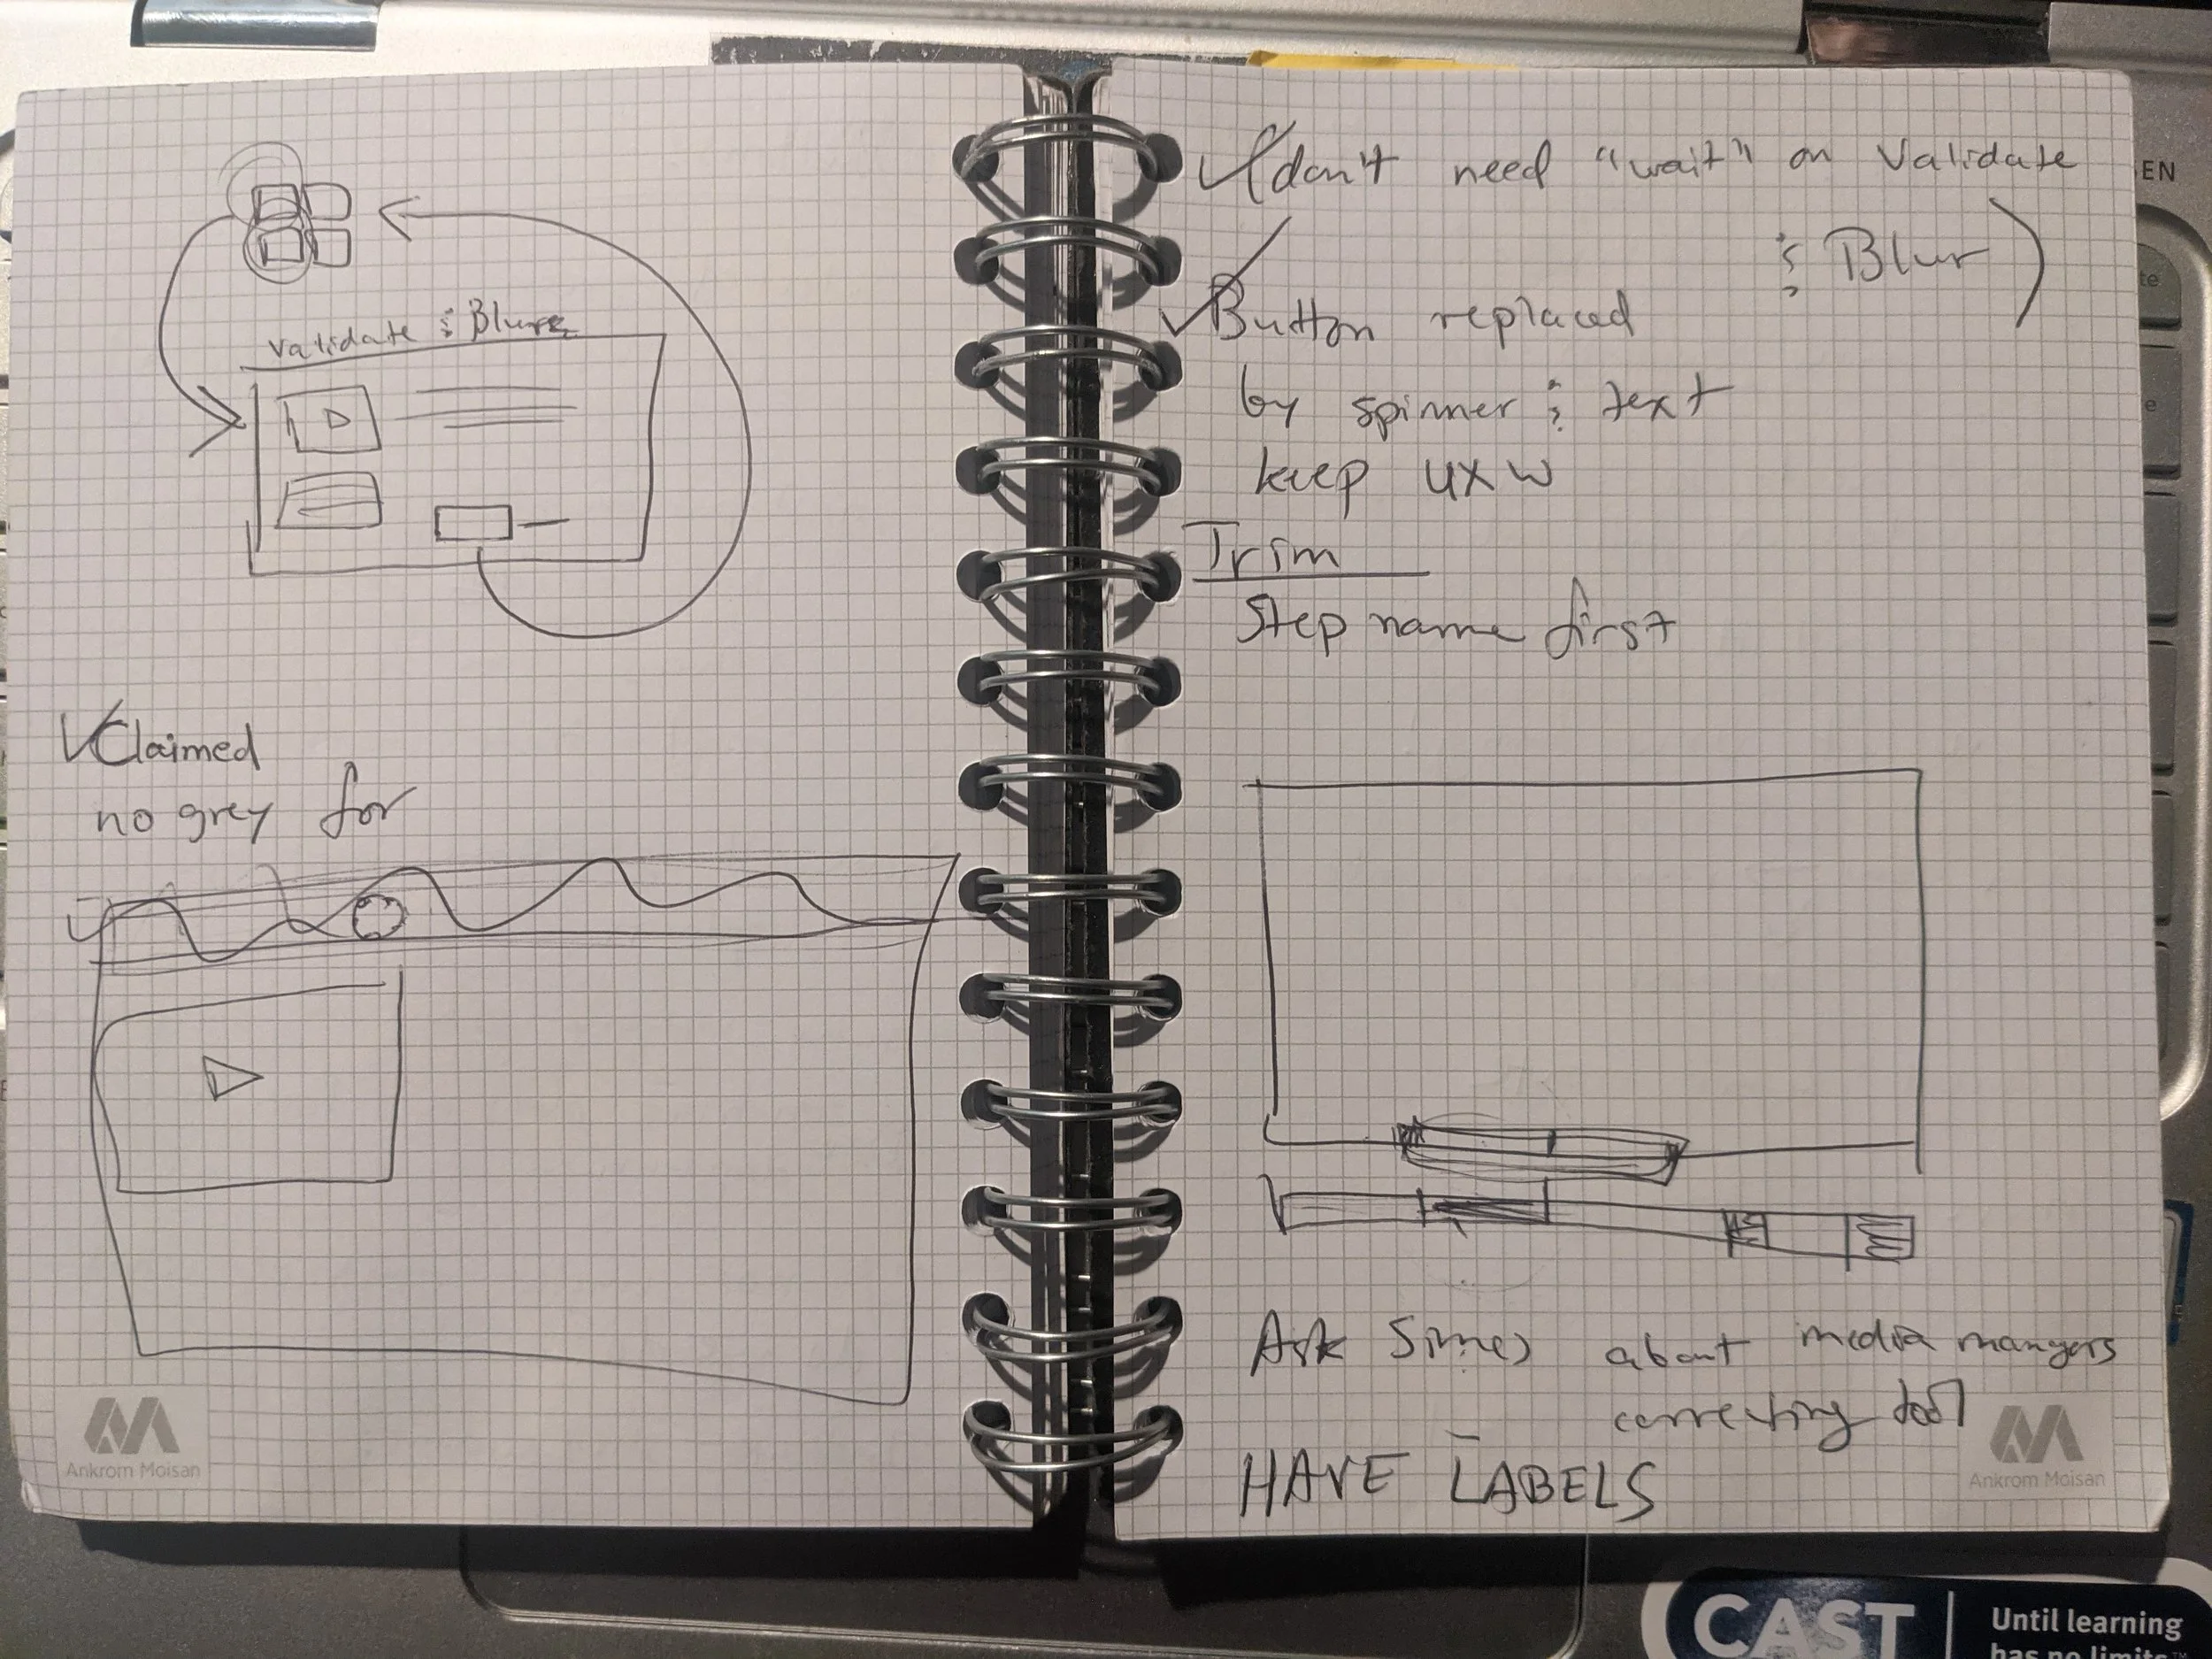 Validate & Blur
✓Claimed
no grey for
Ankrom Moisan
✓(don't need "wait" on Validate
& Blur)
✓Button replaced
by spinner & text
keep UXW
Trim
Step name first
Ask about media mangers
correcting tool
HAVE LABELS
Ankrom Moisan
EN
te
e
CAST
Until learning
has no limits™